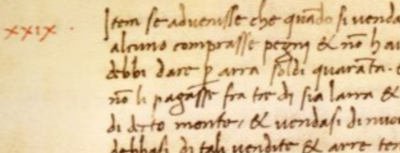 xxix. Item se advenisse che quādo si venda
alcuno comprasse pegni & nō hau
debbi dare p arra soldi quarāta.
nō li pagasse fra tre dj sia larra &
di detto monte, & vendasi di nuo
debbasi di tali vendite & arre ten